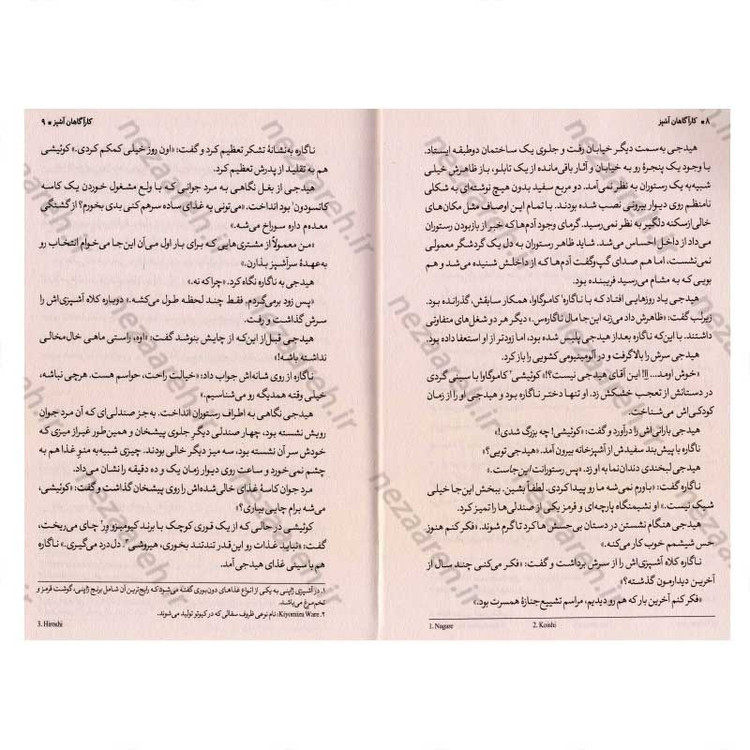 ۸ • کارآگاهان آشپز
هیدجی به‌سمت دیگر خیابان رفت و جلوی یک ساختمان دوطبقه ایستاد.
با وجود یک پنجرهٔ رو به خیابان و آثار باقی‌مانده از یک تابلو، باز ظاهرش خیلی
شبیه به یک رستوران به نظر نمی‌آمد. دو مربع سفید بدون هیچ نوشته‌ای به شکلی
نامنظم روی دیوار بیرونی نصب شده بودند. با تمام این اوصاف مثل مکان‌های
خالی‌ازسکنه دلگیر به نظر نمی‌رسید. گرمای وجود آدم‌ها که خبر از بازبودن رستوران
می‌داد از داخل احساس می‌شد. شاید ظاهر رستوران به دل یک گردشگر معمولی
نمی‌نشست، اما هم صدای گپ‌وگفت آدم‌ها که از داخلش شنیده می‌شد و هم
بویی که به مشام می‌رسید فریبنده بود.
هیدجی یاد روزهایی افتاد که با ناگاره۱ کاموگاوا، همکار سابقش، گذرانده بود.
زیرلب گفت: «ظاهرش داد می‌زنه این‌جا مال ناگاره‌س.» دیگر هر دو شغل‌های متفاوتی
داشتند. با این‌که ناگاره بعد از هیدجی پلیس شده بود، اما زودتر از او استعفا داده بود.
هیدجی سرش را بالا گرفت و در آلومینیومی کشویی را باز کرد.
«خوش اومد... ااا! این آقای هیدجی نیست؟!» کوئیشی۲ کاموگاوا با سینی گردی
در دستانش از تعجب خشکش زد. او تنها دختر ناگاره بود و هیدجی او را از زمان
کودکی‌اش می‌شناخت.
هیدجی بارانی‌اش را درآورد و گفت: «کوئیشی! چه بزرگ شدی!»
ناگاره با پیش‌بند سفیدش از آشپزخانه بیرون آمد. «هیدجی تویی؟»
هیدجی لبخندی دندان‌نما به او زد. «پس رستورانت این‌جاست.»
ناگاره گفت: «باورم نمی‌شه ما رو پیدا کردی. لطفاً بشین. ببخش این‌جا خیلی
شیک نیست.» او نشیمنگاه پارچه‌ای و قرمز یکی از صندلی‌ها را تمیز کرد.
هیدجی هنگام نشستن در دستان بی‌حسش ها کرد تا گرم شوند. «فکر کنم هنوز
حس شیشمم خوب کار می‌کنه.»
ناگاره کلاه آشپزی‌اش را از سرش برداشت و گفت: «فکر می‌کنی چند سال از
آخرین دیدارمون گذشته؟»
«فکر کنم آخرین بار که هم رو دیدیم، مراسم تشییع جنازهٔ همسرت بود.»
1. Nagare
2. Koishi
کارآگاهان آشپز • ۹
ناگاره به‌نشانهٔ تشکر تعظیم کرد و گفت: «اون روز خیلی کمکم کردی.» کوئیشی
هم به تقلید از پدرش تعظیم کرد.
هیدجی از بغل نگاهی به مرد جوانی که با ولع مشغول خوردن یک کاسه
کاتسودون۱ بود انداخت. «می‌تونی یه غذای ساده سرهم کنی بدی بخورم؟ از گشنگی
معده‌م داره سوراخ می‌شه.»
«من معمولاً از مشتری‌هایی که برای بار اول می‌آن این‌جا می‌خوام انتخاب رو
به‌عهدهٔ سرآشپز بذارن.»
هیدجی به ناگاره نگاه کرد. «چرا که نه.»
«پس زود برمی‌گردم. فقط چند لحظه طول می‌کشه.» دوباره کلاه آشپزی‌اش را
سرش گذاشت و رفت.
هیدجی قبل از این‌که از چایش بنوشد گفت: «اوه، راستی ماهی خال‌مخالی
نداشته باشه!»
ناگاره از روی شانه‌اش جواب داد: «خیالت راحت، حواسم هست. هرچی نباشه،
خیلی وقته همدیگه رو می‌شناسیم.»
هیدجی نگاهی به اطراف رستوران انداخت. به‌جز صندلی‌ای که آن مرد جوان
رویش نشسته بود، چهار صندلی دیگر جلوی پیشخان و همین‌طور غیر از میزی که
خودش سر آن نشسته بود، سه میز دیگر خالی بودند. چیزی شبیه به منو غذا هم به
چشم نمی‌خورد و ساعت روی دیوار زمان یک و ده دقیقه را نشان می‌داد.
مرد جوان کاسهٔ غذای خالی‌شده‌اش را روی پیشخان گذاشت و گفت: «کوئیشی،
می‌شه برام چایی بیاری؟»
کوئیشی در حالی که از یک قوری کوچک با برند کیومیزو ور۲ چای می‌ریخت،
گفت: «نباید غذات رو این‌قدر تندتند بخوری، هیروشی۳. دل‌درد می‌گیری.» ناگاره
هم با سینی غذای هیدجی آمد.
۱. در آشپزی ژاپنی به یکی از انواع غذاهای دون‌بوری گفته می‌شود که رایج‌ترین آن شامل برنج ژاپنی، گوشت قرمز و
تخم‌مرغ می‌باشد.
۲. Kiyomizu Ware: نام نوعی ظروف سفالی که در کیوتو تولید می‌شوند.
3. Hiroshi
nezaareh.ir